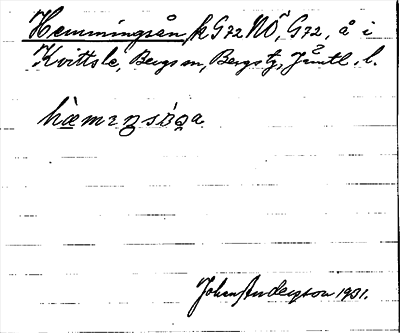 Hemmingsån, k G72 NÖ, G72, å i
Kvittsle, Bergs sn, Bergs tg, Jämtl. l.
hæmıŋsōɑ̯a
Johan Anderson 1931.